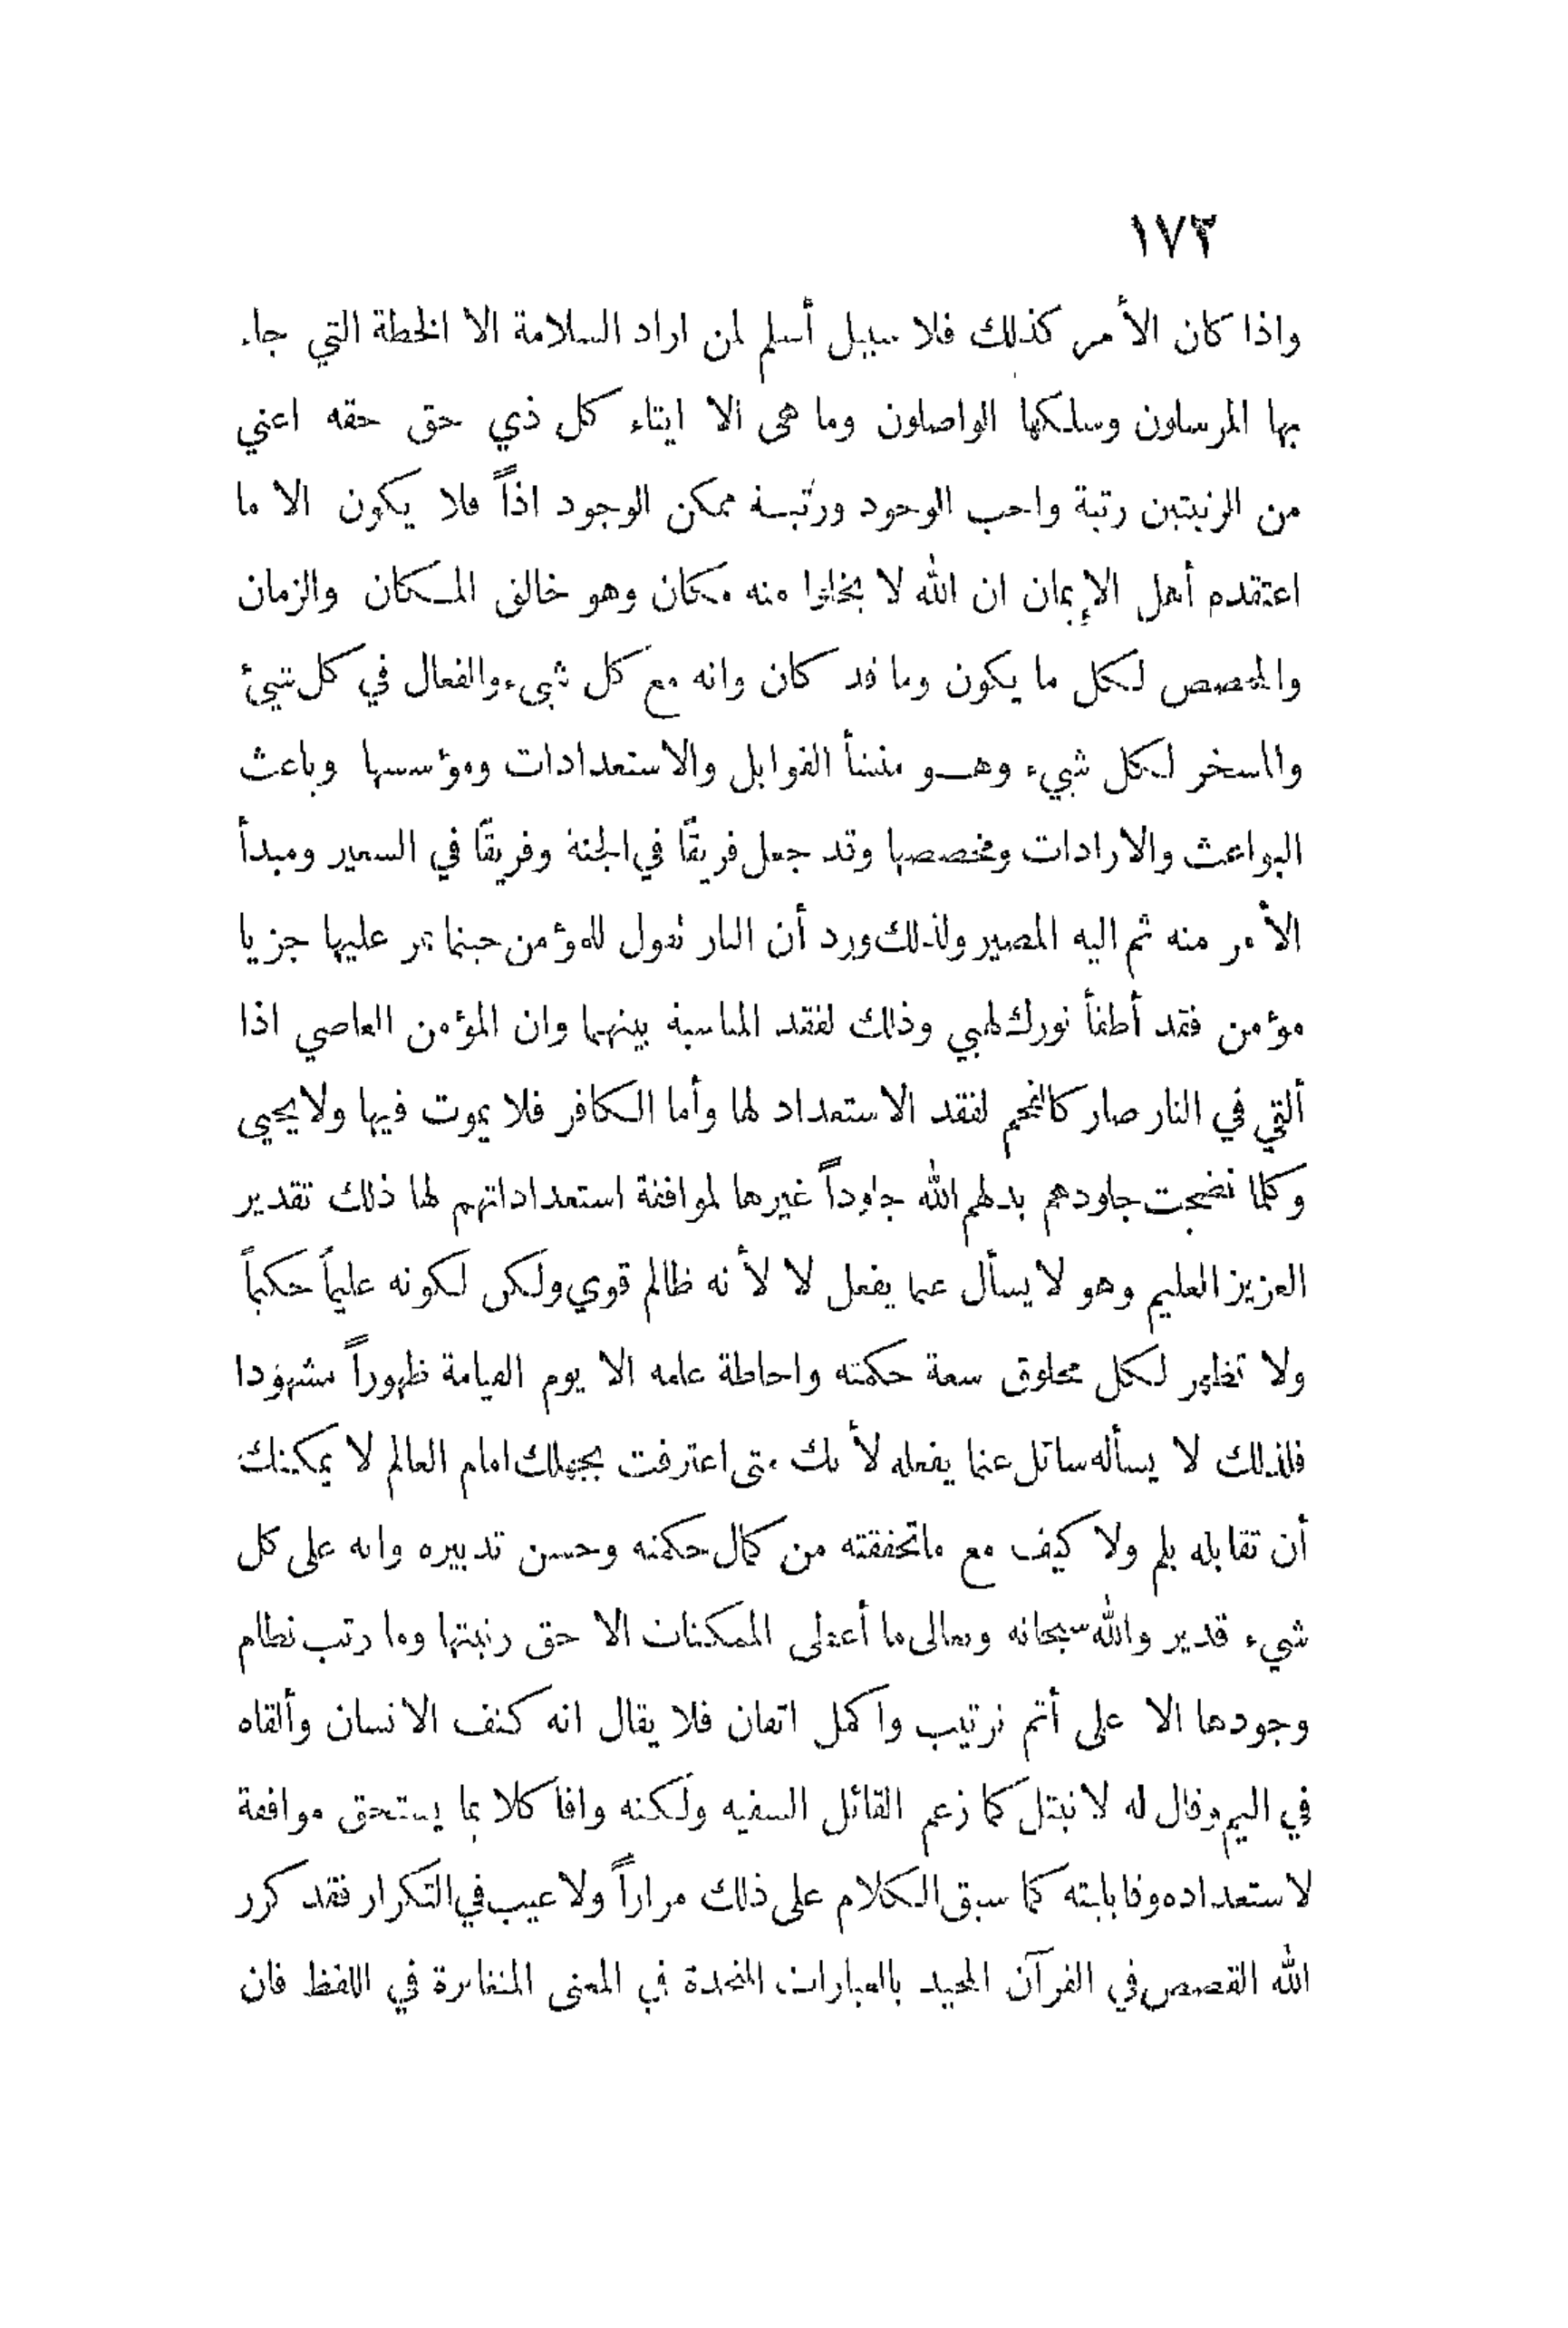 ١٧٣
واذا كان الأمر كذلك فلا سبيل أسلم لمن اراد السلامة الا الخطة التي جاء
بها المرسلون وسلكها الواصلون وما هي الا ايتاء كل ذي حق حقه اعني
من الرتبتين رتبة واجب الوجود ورتبة ممكن الوجود اذاً فلا يكون الا ما
اعتقده أهل الإيمان ان الله لا يخلوا منه مكان وهو خالق المكان والزمان
والمخصص لكل ما يكون وما قد كان وانه مع كل شيء والفعال في كل شيئ
والمسخر لكل شيء وهو منشأ القوابل والاستعدادات ومؤسسها وباعث
البواعث والارادات ومخصصها وقد جعل فريقًا في الجنة وفريقًا في السعير ومبدأ
الأمر منه ثم اليه المصير ولذلك ورد أن النار تقول للمؤمن حينما تمر عليها جز يا
مؤمن فقد أطفأ نورك لهبي وذلك لفقد المناسبة بينهما وان المؤمن العاصي اذا
ألقي في النار صار كالفحم لفقد الاستعداد لها وأما الكافر فلا يموت فيها ولا يحيى
وكلما نضجت جلودهم بدلهم الله جلوداً غيرها لموافقة استعداداتهم لها ذلك تقدير
العزيز العليم وهو لا يسأل عما يفعل لا لأنه ظالم قوي ولكن لكونه عليماً حكيماً
ولا تظهر لكل مخلوق سعة حكمته واحاطة علمه الا يوم القيامة ظهوراً مشهودا
فلذلك لا يسأله سائل عما يفعله لأنك متى اعترفت بجهلك امام العالم لا يمكنك
أن تقابله بلم ولا كيف مع ماتحققته من كمال حكمته وحسن تدبيره وانه على كل
شيء قدير والله سبحانه وتعالى ما أعطى الممكنات الا حق رتبتها وما رتب نظام
وجودها الا على أتم ترتيب واكمل اتقان فلا يقال انه كتف الانسان وألقاه
في اليم وقال له لا تبتل كما زعم القائل السفيه ولكنه وافا كلا بما يستحق موافقة
لاستعداده وقابليته كما سبق الكلام على ذلك مراراً ولا عيب في التكرار فقد كرر
الله القصص في القرآن المجيد بالعبارات المتحدة في المعنى المتغايرة في اللفظ فان